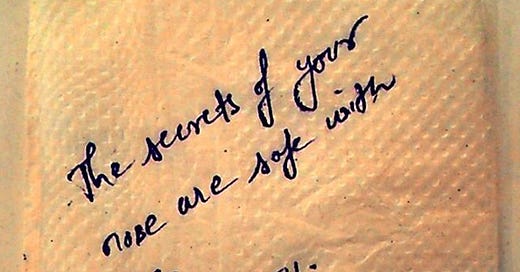 The secrets of your
nose are safe with